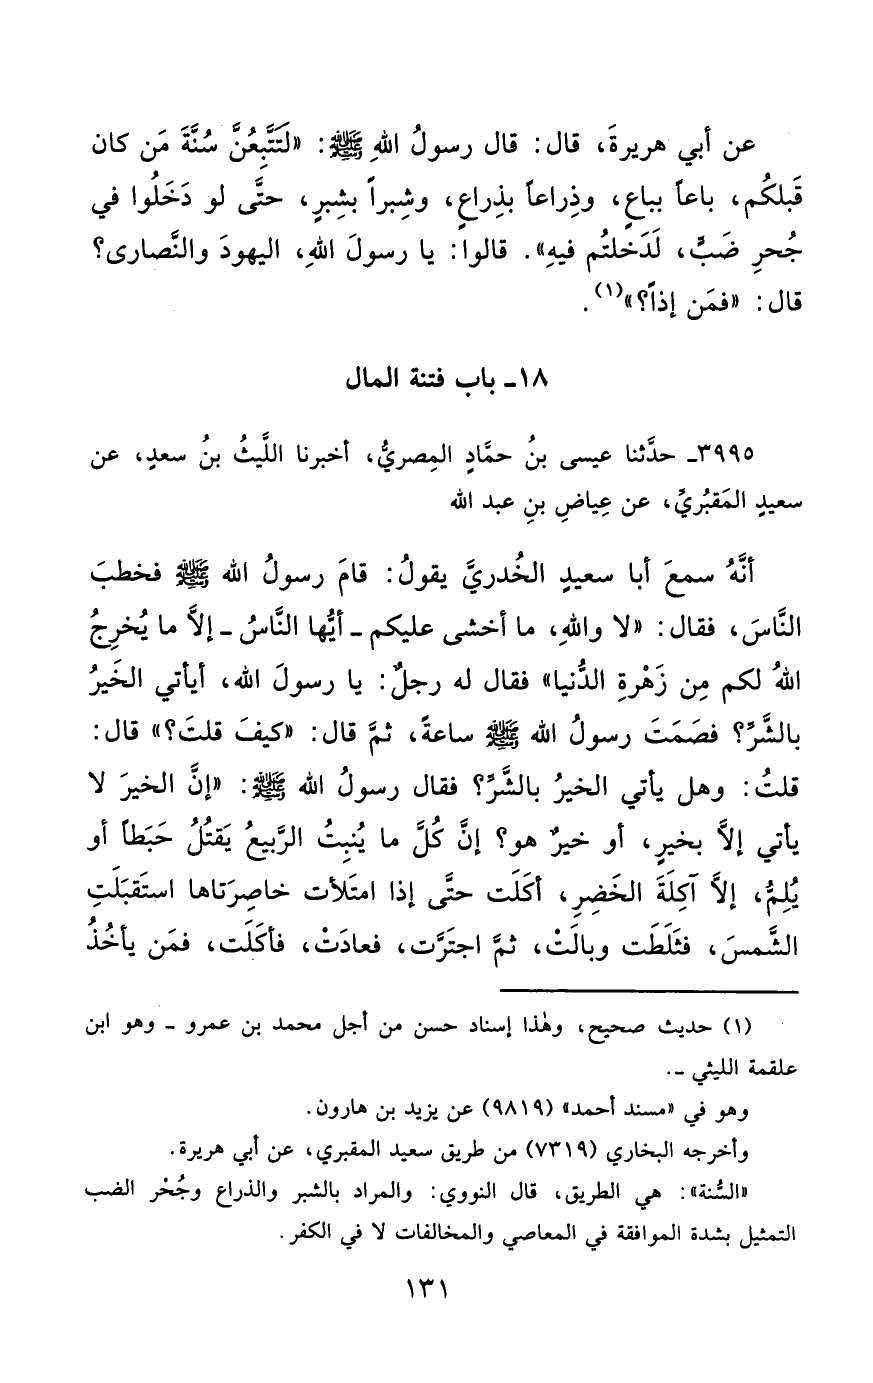 عن أبي هريرةَ، قال: قال رسولُ اللهِ ﷺ: «لَتَتَّبِعُنَّ سُنَّةَ مَن كان
قَبلكُم، باعاً بباعٍ، وذِراعاً بذِراعٍ، وشِبراً بشِبرٍ، حتَّى لو دَخَلُوا في
جُحرِ ضَبٍّ، لَدَخلتُم فيهِ». قالوا: يا رسولَ اللهِ، اليهودَ والنَّصارى؟
قال: «فمَن إذاً؟»(١).
١٨ـ باب فتنة المال
٣٩٩٥ـ حدَّثنا عيسى بنُ حمَّادٍ المِصريُّ، أخبرنا اللَّيثُ بنُ سعدٍ، عن
سعيدٍ المَقبُريِّ، عن عِياضِ بنِ عبد الله
أنَّهُ سمعَ أبا سعيدٍ الخُدريَّ يقولُ: قامَ رسولُ الله ﷺ فخطبَ
النَّاسَ، فقال: «لا واللهِ، ما أخشى عليكم ـ أيُّها النَّاسُ ـ إلاَّ ما يُخرِجُ
اللهُ لكم مِن زَهْرةِ الدُّنيا» فقال له رجلٌ: يا رسولَ الله، أيأتي الخَيرُ
بالشَّرِّ؟ فصَمَتَ رسولُ الله ﷺ ساعةً، ثمَّ قال: «كيفَ قلتَ؟» قال:
قلتُ: وهل يأتي الخيرُ بالشَّرِّ؟ فقال رسولُ الله ﷺ: «إنَّ الخيرَ لا
يأتي إلاَّ بخيرٍ، أو خيرٌ هو؟ إنَّ كُلَّ ما يُنبِتُ الرَّبيعُ يَقتُلُ حَبَطاً أو
يُلِمُّ، إلاَّ آكِلَةَ الخَضِرِ، أكَلَت حتَّى إذا امتَلأت خاصِرَتاها استَقبَلَتِ
الشَّمسَ، فثَلَطَت وبالَتْ، ثمَّ اجتَرَّت، فعادَتْ، فأكَلَت، فمَن يأخُذُ
(١) حديث صحيح، وهٰذا إسناد حسن من أجل محمد بن عمرو ـ وهو ابن
علقمة الليثي ـ.
وهو في «مسند أحمد» (٩٨١٩) عن يزيد بن هارون.
وأخرجه البخاري (٧٣١٩) من طريق سعيد المقبري، عن أبي هريرة.
«السُّنة»: هي الطريق، قال النووي: والمراد بالشبر والذراع وجُحْر الضب
التمثيل بشدة الموافقة في المعاصي والمخالفات لا في الكفر.
١٣١